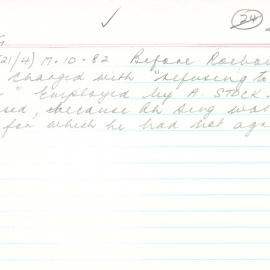 24
21/4) 17.10.82 Before
charged with "refusing to
" Employed by A STOCK.
sed, because Ah Sing wa
for which he had not ag